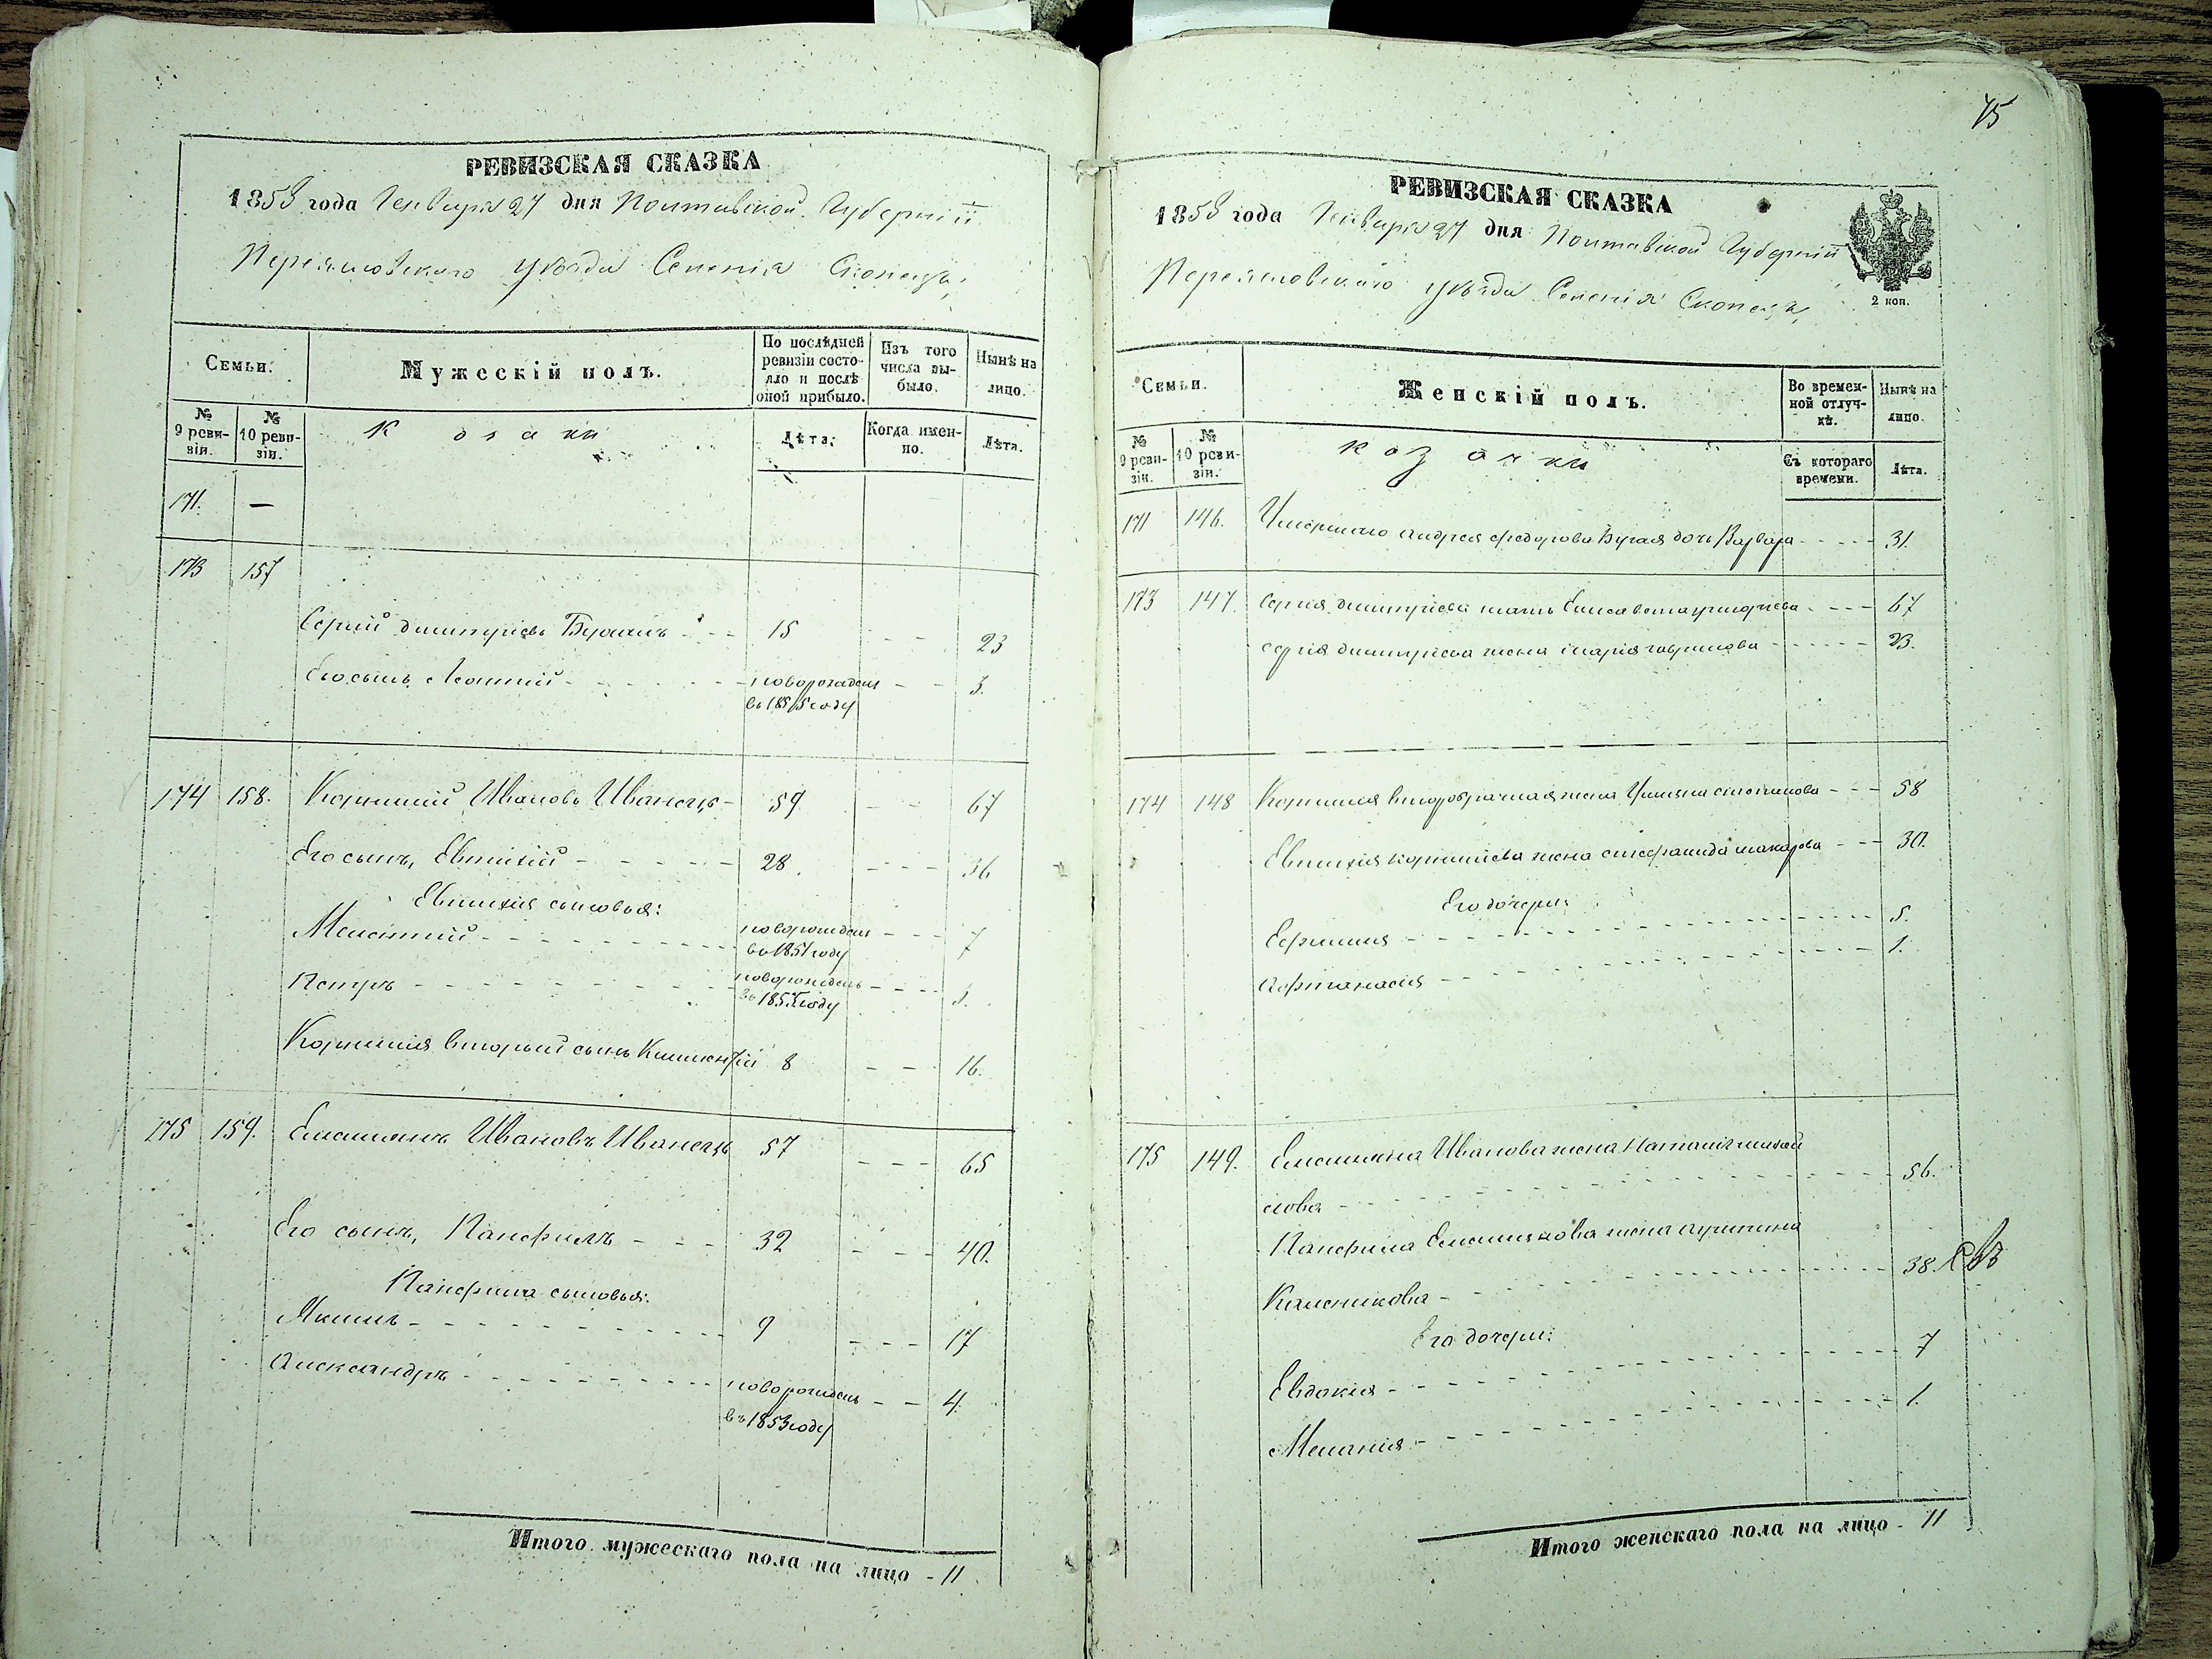 РЕВИЗСКАЯ СКАЗКА
1858 года Генваря 27 дня Полтавской Губерніи
Переяславскаго уѣзда Селенія Скопецъ,
Семьи.
Мужескій полъ.
По послѣдней ревизіи состояло и послѣ оной прибыло.
Изъ того числа выбыло.
Нынѣ на лицо.
№ 9 ревизіи.
№ 10 ревизіи.
Козаки
Лѣта.
Когда именно.
Лѣта.
171. —
173 157
Сергій Димитріевъ - - 15 - - - 23
Его сынъ - - - новорожден въ 1855 году - - 3.
174 158. Корнилій Ивановъ Иванецъ - 59 - - 67
Его сынъ, Евтихій - - - 28. - - - 36
Евтихія сыновья:
Мелетій - - - новорожден въ 1851 году - - - 7
Петръ - - - новорожденъ
Корнилія вторый сынъ 8 - - - 16.
175 159. Емельянъ Ивановъ Иванецъ 57 - - - 65
Его сынъ, Панфилъ - - - 32 - - - 40.
Панфила сыновья:
Якимъ - - - 9 - - - 17
Александръ - - - новорожден въ 1853 году - - 4.
Итого мужескаго пола на лицо - 11
75
РЕВИЗСКАЯ СКАЗКА
1858 года Генваря 27 дня Полтавской Губерніи
Переяславскаго уѣзда Селенія Скопецъ,
2 коп.
Семьи.
Женскій полъ.
Во временной отлучкѣ.
Нынѣ на лицо.
№ 9 ревизіи.
№ 10 ревизіи.
Козачки
Съ котораго времени.
Лѣта.
171 146. Умершаго Андрея Федорова дочь Варвара - - - 31.
173 147. Сергія Димитріева мать Елисавета Григорьева - - - 67
Сергія Димитріева жена Марія Гаврилова - - - 23.
174 148 Корнилія второбрачная жена Уляна - - - 58
Евтихія Корниліева жена Стефанида Макарова - - - 30.
Его дочери:
- - - 5.
Афтанасія - - - 1.
175 149. Емельяна Иванова жена Наталія Михай
лова - - - 56.
Панфила Емельянова жена
- - - 38.
Его дочери:
Евдокія - - - 7
Меланія - - - 1.
Итого женскаго пола на лицо - 11